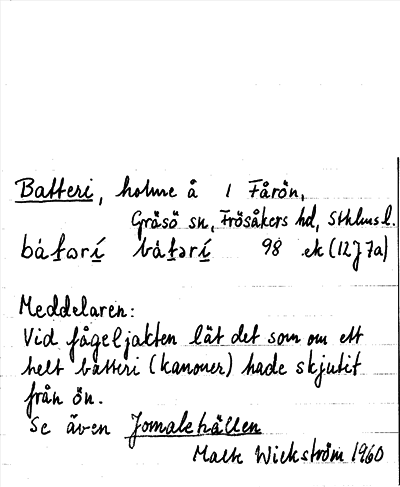 Batteri, holme å 1 Fårön,
Gräsö sn, Frösåkers hd, Sthlms l.
98 ek (12J7a)
Meddelaren:
Vid fågeljakten lät det som om ett
helt batteri (kanoner) hade skjutit
från ön.
Se även Jomalehällen
Wickström 1960